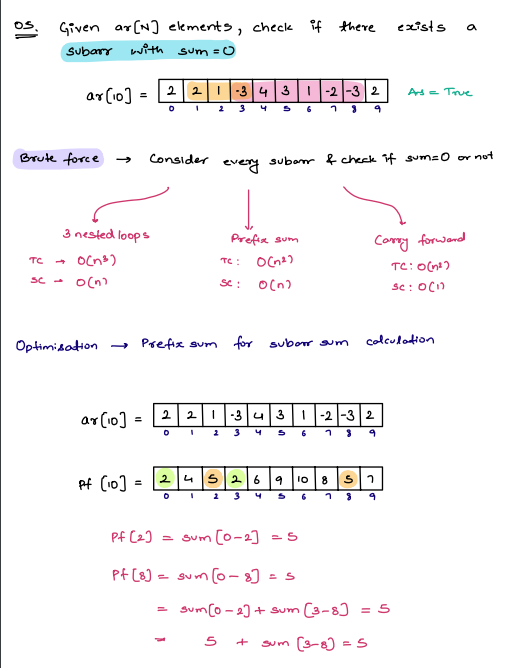 Q5. Given ar[N] elements, check if there exists a
subarr with sum = 0
ar[10] = 2 2 1 -3 4 3 1 -2 -3 2 Ans = True
0 1 2 3 4 5 6 7 8 9
Brute force → Consider every subarr & check if sum=0 or not
3 nested loops Prefix sum Carry forward
TC → O(n³) TC: O(n²) TC: O(n²)
SC → O(n) SC: O(n) SC: O(1)
Optimisation → Prefix sum for subarr sum calculation
ar[10] = 2 2 1 -3 4 3 1 -2 -3 2
0 1 2 3 4 5 6 7 8 9
Pf [10] = 2 4 5 2 6 9 10 8 5 7
0 1 2 3 4 5 6 7 8 9
Pf[2] = sum[0-2] = 5
Pf[8] = sum[0-8] = 5
= sum[0-2] + sum[3-8] = 5
= 5 + sum [3-8] = 5